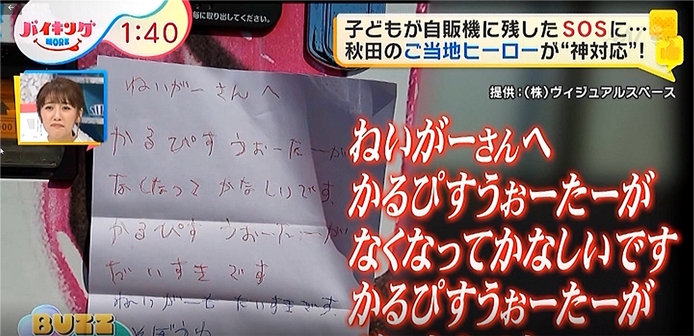 バイキング
MORE
1:40
子どもが自販機に残したSOSに…
秋田のご当地ヒーローが“神対応”!
提供:(株)ヴィジュアルスペース
ねいがーさんへ
かるぴすうぉーたーが
なくなってかなしいです
かるぴすうぉーたーが
だいすきです
ねいがーもだいすきです
ねいがーさんへ
かるぴすうぉーたーが
なくなってかなしいです
かるぴすうぉーたーが
BUZZ